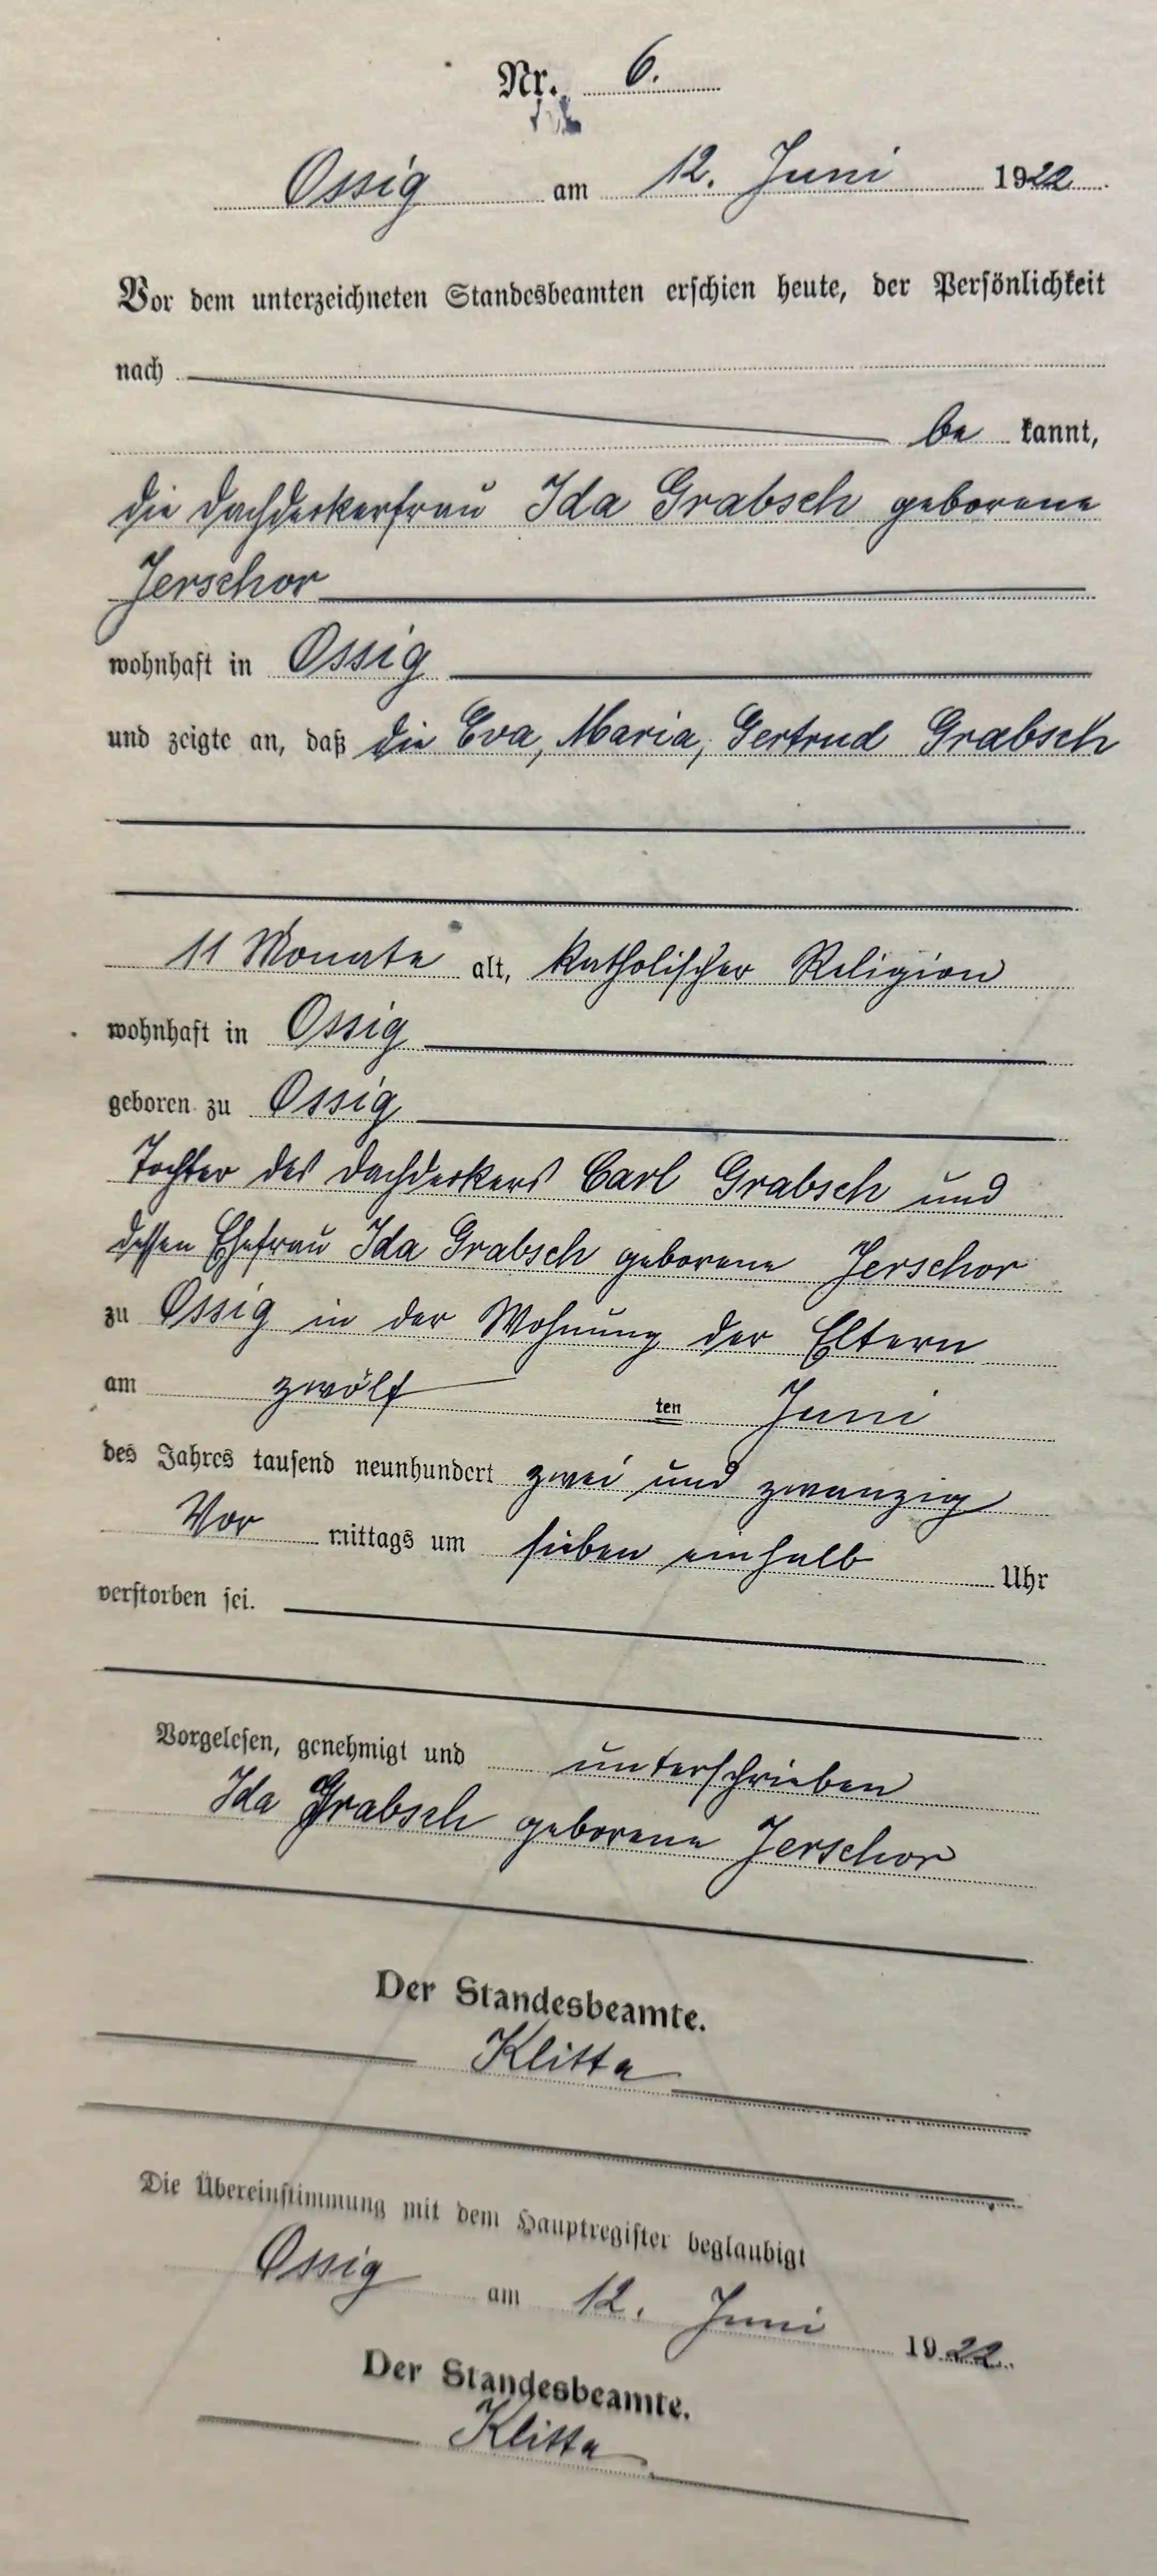 Nr. 6.
Ossig am 12. Juni 1922
Vor dem unterzeichneten Standesbeamten erschien heute, der Persönlichkeit
nach
be kannt,
die Dachdeckerfrau Ida Grabsch geborene
Jerschor
wohnhaft in Ossig
und zeigte an, daß die Eva, Maria, Gertrud Grabsch
11 Monate alt, katholischer Religion
wohnhaft in Ossig
geboren zu Ossig
Tochter des Dachdeckers Carl Grabsch und
dessen Ehefrau Ida Grabsch geborene Jerschor
zu Ossig in der Wohnung der Eltern
am zwölf ten Juni
des Jahres tausend neunhundert zwei und zwanzig
Vor mittags um sieben einhalb Uhr
verstorben sei.
Vorgelesen, genehmigt und unterschrieben
Ida Grabsch geborene Jerschor
Der Standesbeamte.
Klitta
Die Übereinstimmung mit dem Hauptregister beglaubigt
Ossig am 12. Juni 1922.
Der Standesbeamte.
Klitta